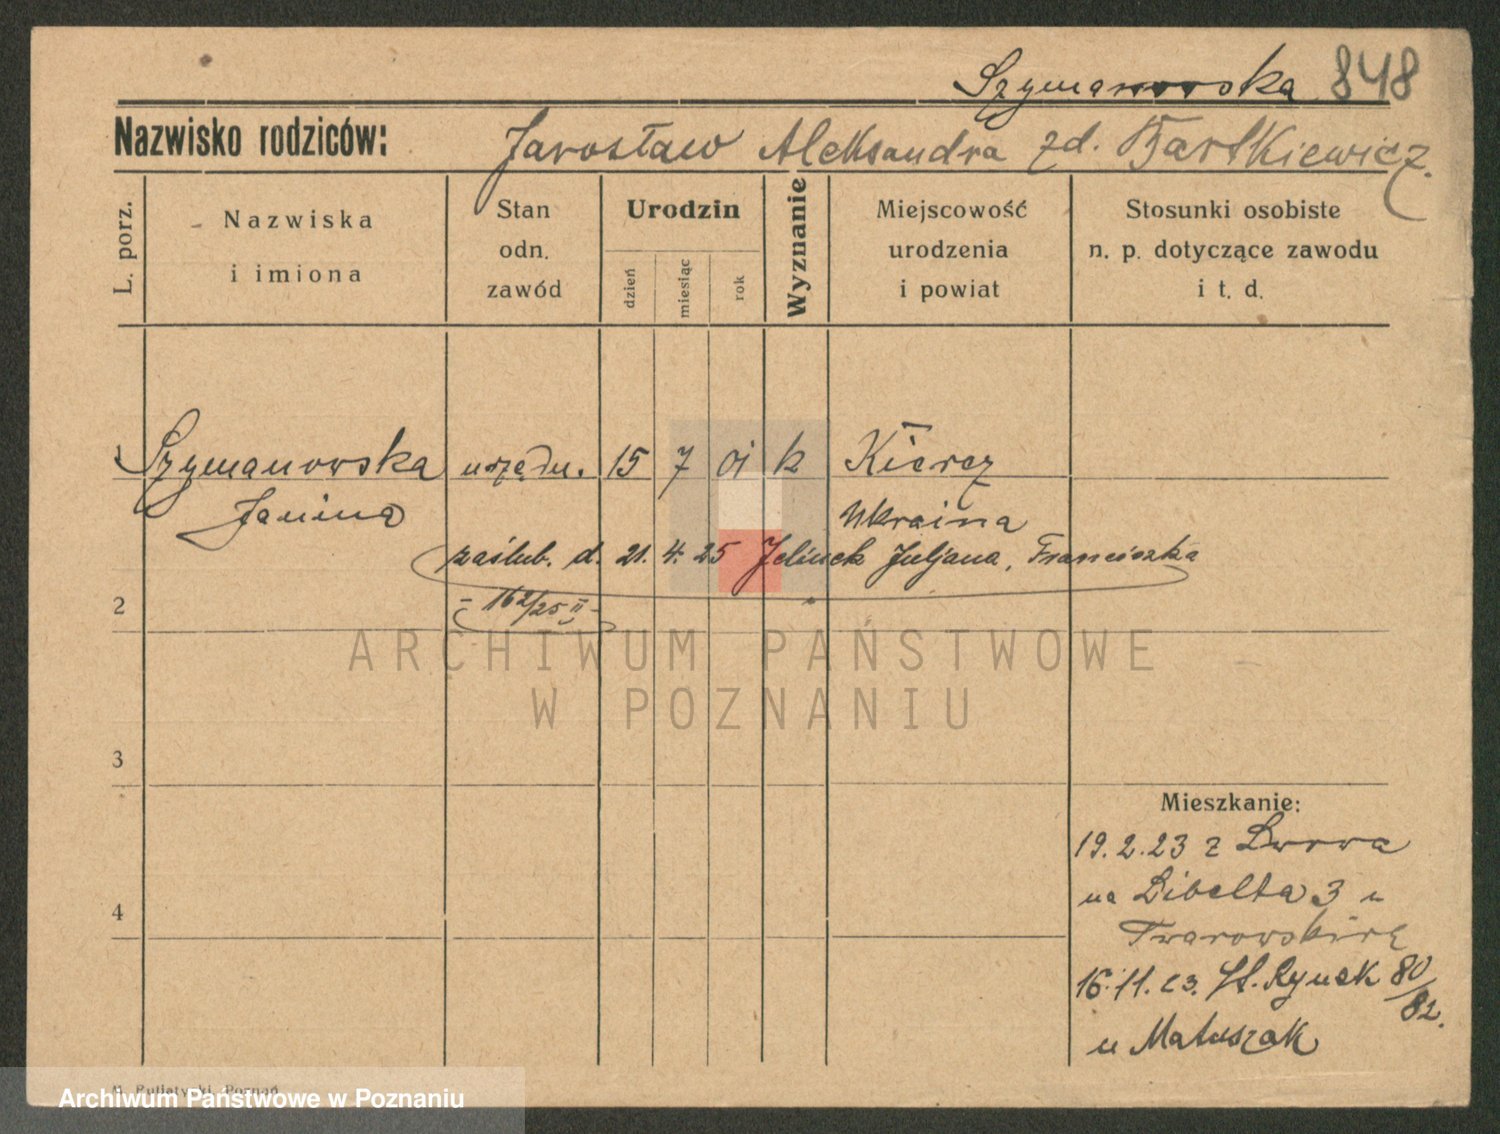 Szymanowska 848
Nazwisko rodziców: Jarosław Aleksandra zd. Bartkiewicz
L. porz.
Nazwiska
i imiona
Stan
odn.
zawód
Urodzin
dzień
miesiąc
rok
Wyznanie
Miejscowość
urodzenia
i powiat
Stosunki osobiste
n. p. dotyczące zawodu
i t. d.
1 Szymanowska urzędn. 15 7 01 k
Janina Ukraina
zaślub. d. 21. 4. 25 Jelinek Juljana, Franciszka
- 162/25 II -
2
3
4
Mieszkanie:
19.2.23 z Lwowa
na Libelta 3 u
16.11.23. St. Rynek 80/82.
u Matuszak
Archiwum Państwowe w Poznaniu
ARCHIWUM PAŃSTWOWE
W POZNANIU